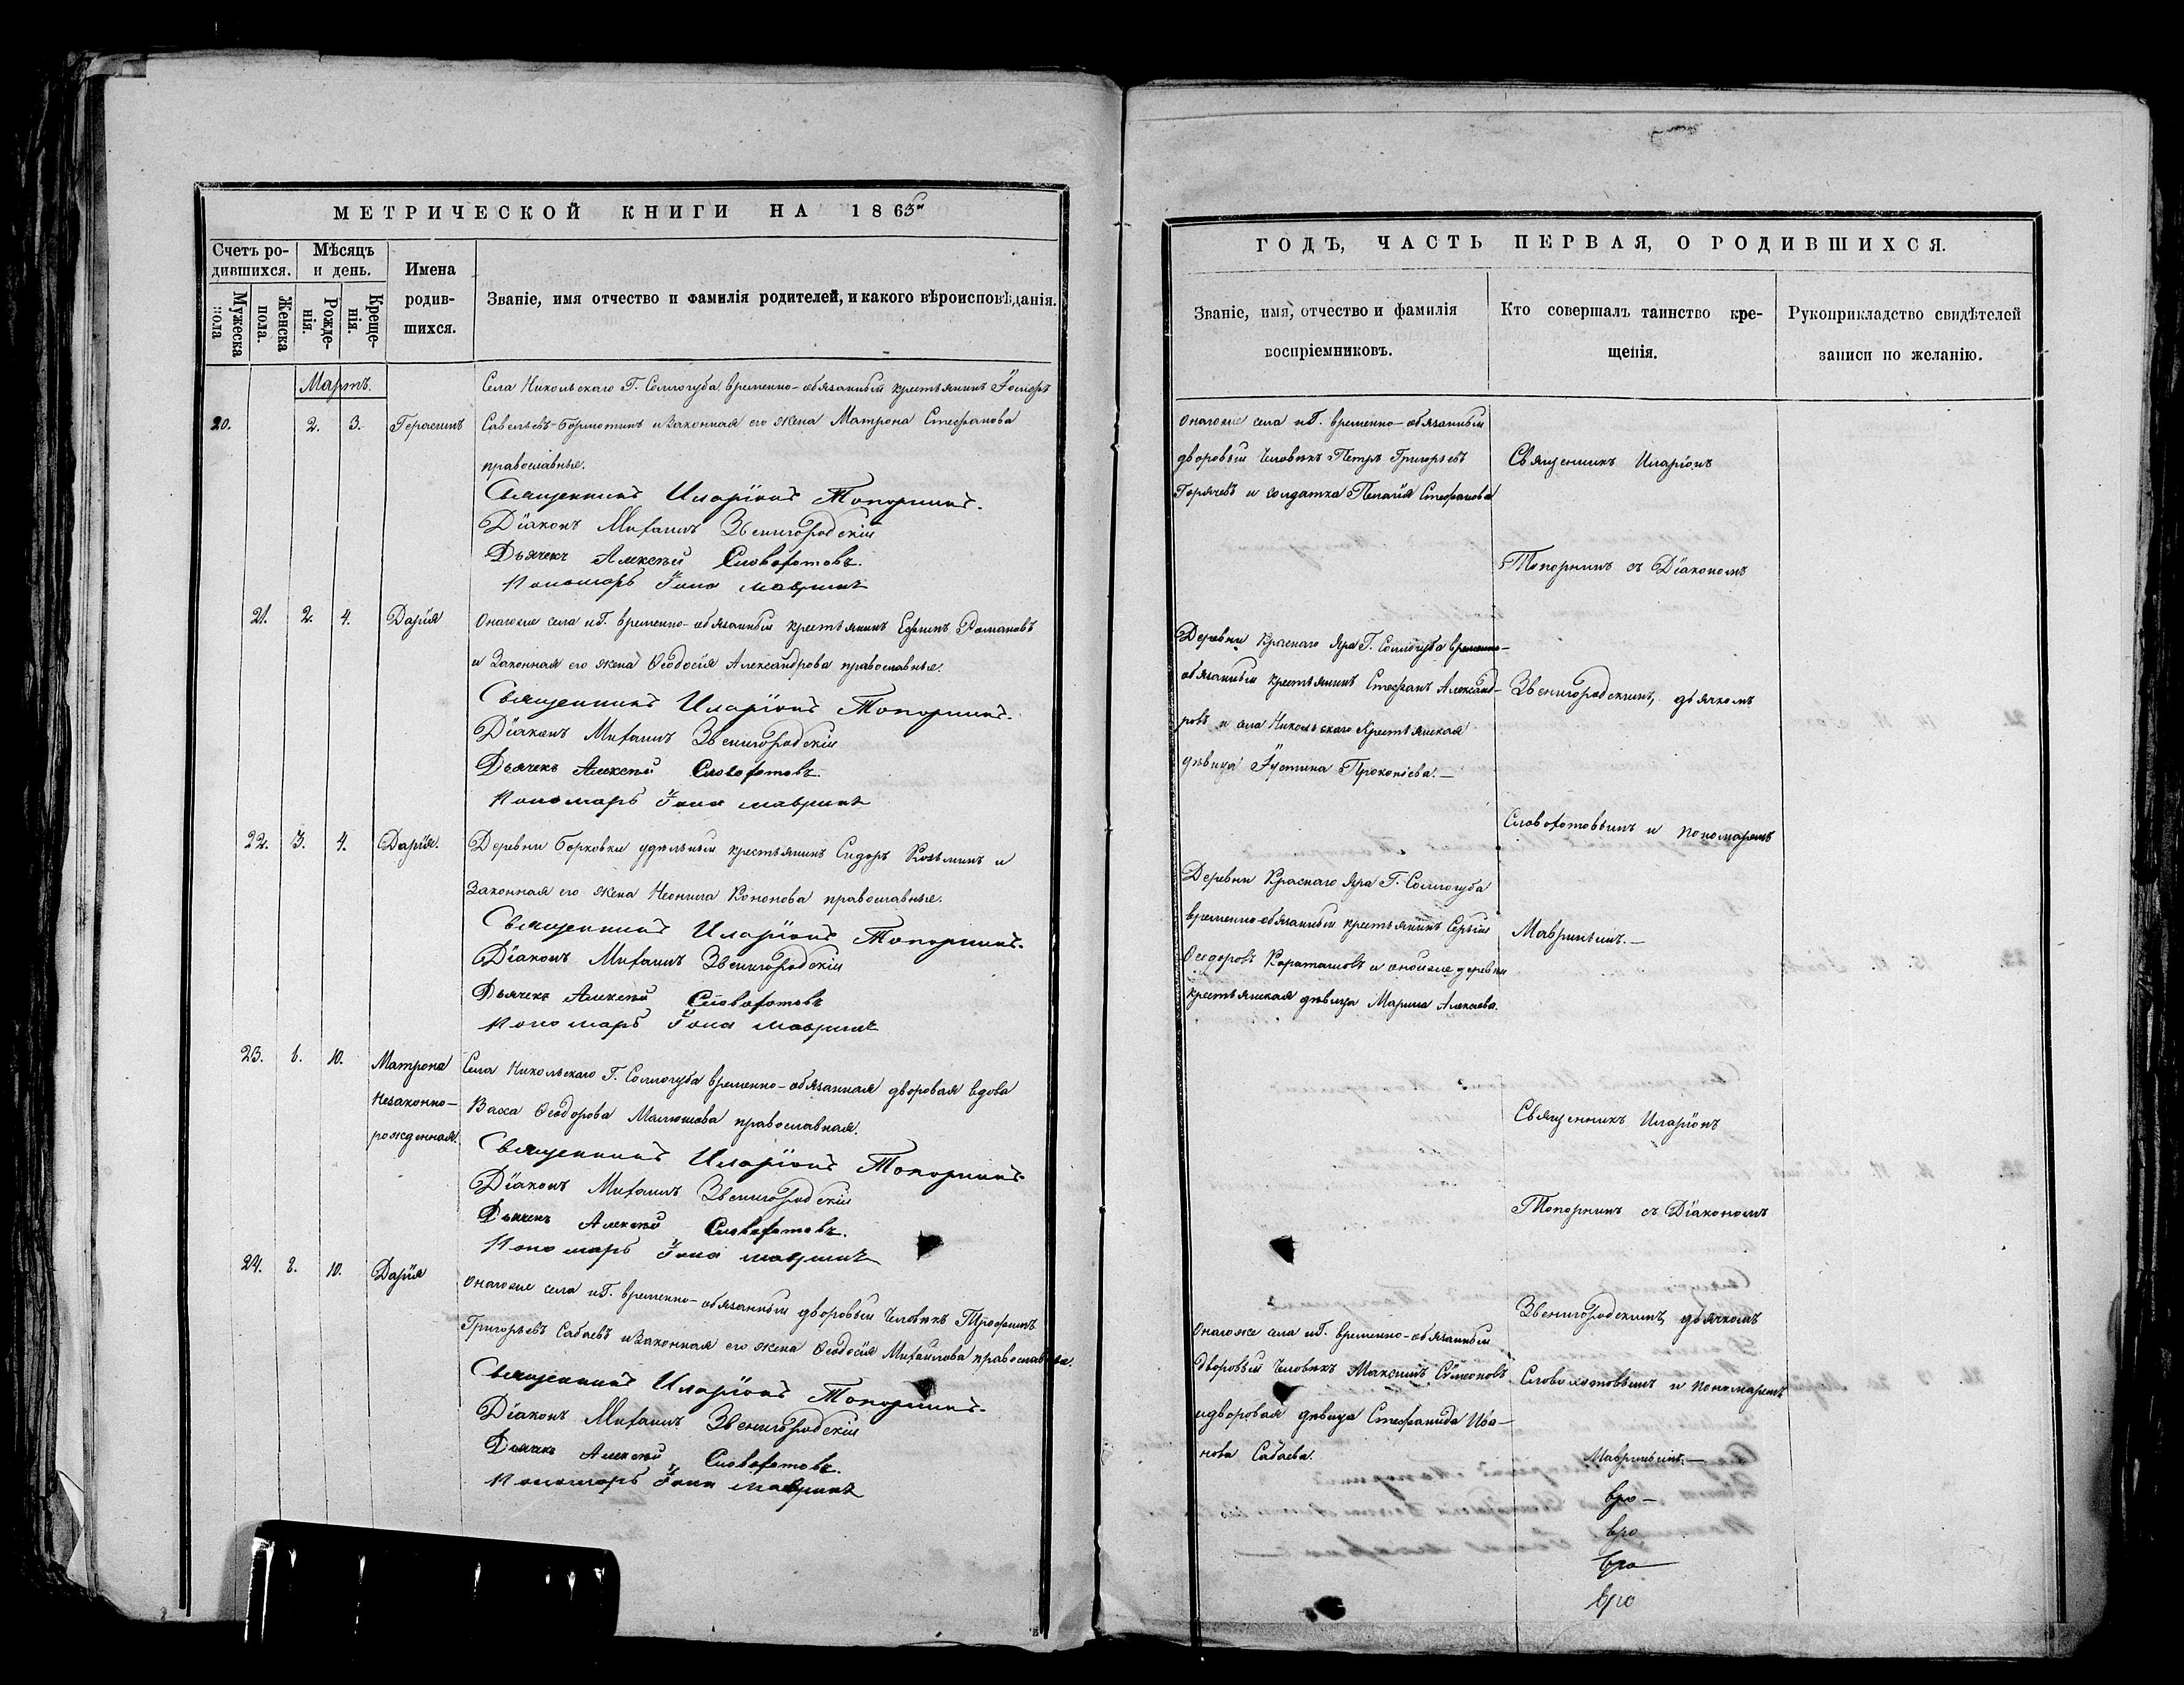 МЕТРИЧЕСКОЙ КНИГИ НА 1865й
Счетъ ро-
дившихся.
Мѣсяцъ
и день.
Мужеска
пола
Женска
пола.
Рожде-
нія.
Креще-
нія.
Имена
родив-
шихся.
Званіе, имя отчество и фамилія родителей, и какого вѣроисповѣданія.
Мартъ.
Села Никольскаго Г. Соллогуба временно-обязанный крестьянинъ
20. 2. 3. Герасимъ Савельевъ и законная его жена Матрона Стефанова
православные.
Священникъ Иларіонъ Топорнинъ.
Діаконъ Михаилъ Звенигородскій
Дьячекъ Алексѣй Словохотовъ.
Пономарь Іона Мавринъ
21. 2. 4. Дарія Онагоже села и Г. временно-обязанный крестьянинъ Ефимъ Романовъ
и законная его жена Ѳеодосія Александрова православные.
Священникъ Иларіонъ Топорнинъ.
Діаконъ Михаилъ Звенигородскій
Дьячекъ Алексѣй Словохотовъ.
Пономарь Іона Мавринъ
22. 3. 4. Дарія. Деревни Борковки удѣльный крестьянинъ Сидоръ Козьминъ и
законная его жена Неонила Кононова православные.
Священникъ Иларіонъ Топорнинъ.
Діаконъ Михаилъ Звенигородскій
Дьячекъ Алексѣй Словохотовъ
Пономарь Іона Мавринъ
23. 6. 10. Матрона Села Никольскаго Г. Соллогуба временно-обязанная дворовая вдова
незаконно- Васса Ѳеодорова православная.
рожденная.
Священникъ Иларіонъ Топорнинъ.
Діаконъ Михаилъ Звенигородскій
Дьячекъ Алексѣй Словохотовъ.
Пономарь Іона Мавринъ
24. 8. 10. Дарія Онагоже села и Г. временно-обязанный дворовый человѣкъ Трофимъ
Григорьевъ Сабаевъ и законная его жена Ѳеодосія Михайлова православные.
Священникъ Иларіонъ Топорнинъ.
Діаконъ Михаилъ Звенигородскій
Дьячекъ Алексѣй Словохотовъ.
Пономарь Іона Мавринъ
ГОДЪ, ЧАСТЬ ПЕРВАЯ, О РОДИВШИХСЯ.
Званіе, имя, отчество и фамилія
воспріемниковъ.
Кто совершалъ таинство кре-
щенія.
Рукоприкладство свидѣтелей
записи по желанію.
Онагоже села и Г. временно-обязанный
дворовый человѣкъ Петръ Григорьевъ
Горячевъ и солдатка Пелагія Стефанова
Священникъ Иларіонъ
Топорнинъ съ Діакономъ
Деревни Краснаго Яра Г. Соллогуба временно-
обязанный крестьянинъ Стефанъ Александ-
ровъ и села Никольскаго крестьянская
дѣвица Іустина Прокопіева.—
Звенигородскимъ, дьячкомъ
Словохотовымъ и пономаремъ
Деревни Краснаго Яра Г. Соллогуба
временно-обязанный крестьянинъ Сергій
Ѳеодоровъ и оноеже деревни
крестьянская дѣвица Марина Алексѣева.
Мавринымъ.—
Священникъ Иларіонъ
Топорнинъ съ Діакономъ
Звенигородскимъ, дьячкомъ
Словохотовымъ и пономаремъ
Мавринымъ.—
Онагоже села и Г. временно-обязанный
дворовый человѣкъ Максимъ Сѵмеоновъ
и дворовая дѣвица Стефанида Ива-
нова Сабаева.